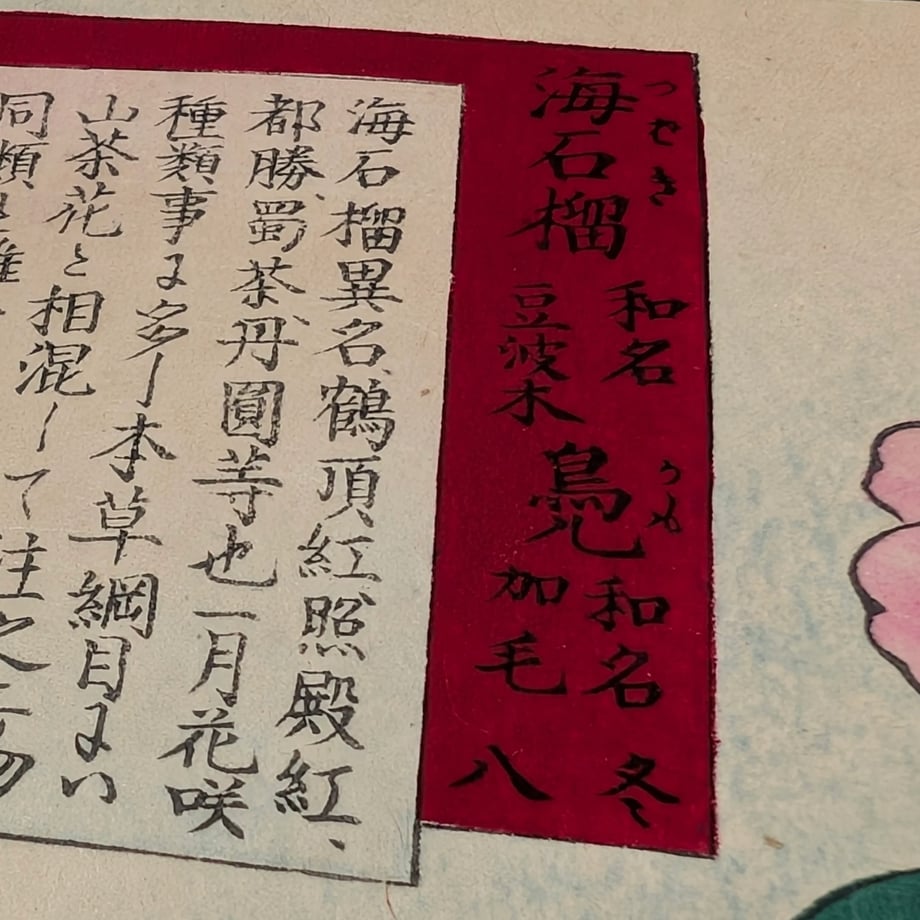 海石榴 和名 豆波木 鳬 和名 加毛 冬 八
つばき
かも
海石榴異名、鶴頂紅、照殿紅、
都勝、蜀茶、丹圓等也一月花咲
種類事に多し本草綱目には
山茶花と相混して註
同類